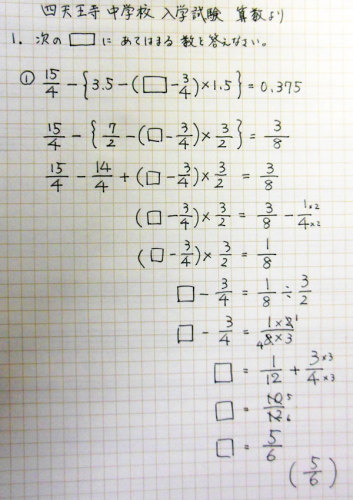 四天王寺中学校 入学試験 算数より
1. 次の□にあてはまる数を答えなさい。
① 15/4 − {3.5 − (□ − 3/4) × 1.5} = 0.375
15/4 − {7/2 − (□ − 3/4) × 3/2} = 3/8
15/4 − 14/4 + (□ − 3/4) × 3/2 = 3/8
(□ − 3/4) × 3/2 = 3/8 − 1×2/4×2
(□ − 3/4) × 3/2 = 1/8
□ − 3/4 = 1/8 ÷ 3/2
□ − 3/4 = 1×2 1/4 8×3
□ = 1/12 + 3×3/4×3
□ = 10 5/12 6
□ = 5/6
(5/6)